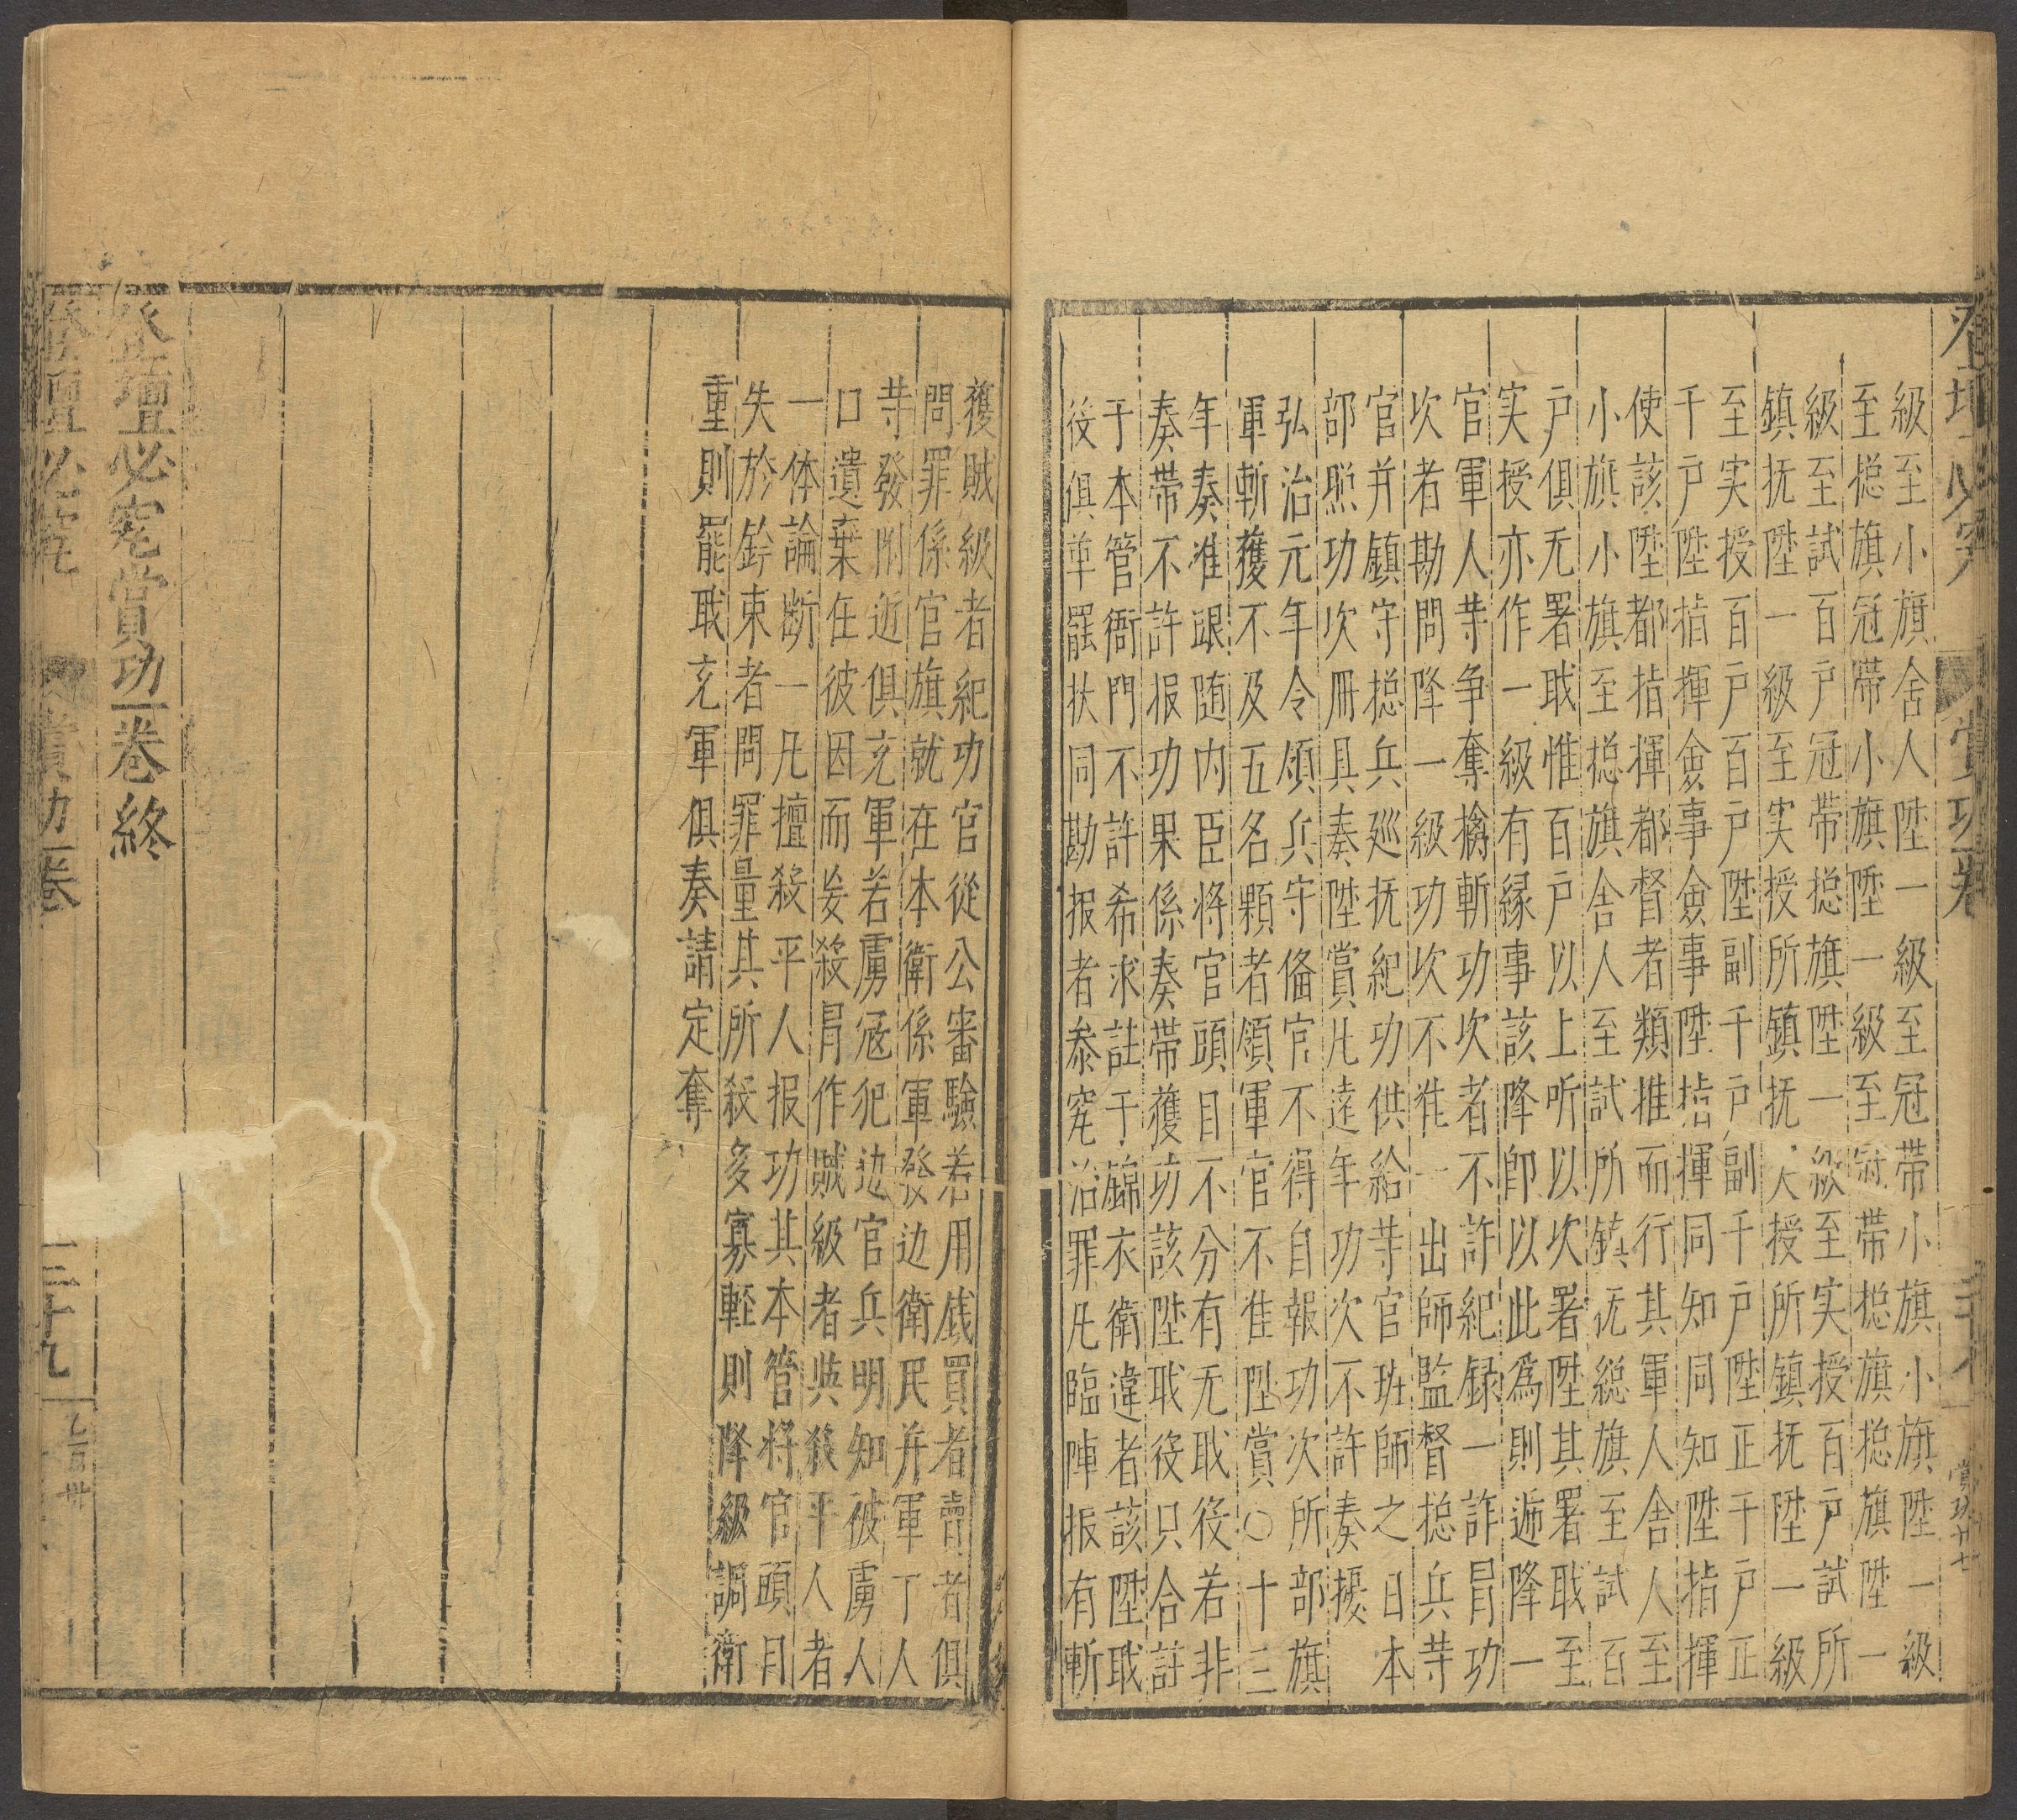 級至小旗舍人陞一級至冠帶小旗小旗陞一級
至㧾旗冠帶小旗陞一級至冠帶㧾旗㧾旗陞一
級至試百户冠帶㧾旗陞一級至实授百户試所
鎮抚陞一級至实授所鎮抚实授所鎮抚陞一級
至实授百户百户陞副千户副千户陞正千户正
千户陞指揮僉事僉事陞指揮同知同知陞指揮
使該陞都指揮都督者類推而行其軍人舍人至
小旗小旗至㧾旗舍人至試所鎮抚総旗至試百
户俱无署戢惟百户以上听以次署陞其署戢至
实授亦作一級有縁事該降即以此爲則遞降一
官軍人䓁争奪擒斬功次者不許紀録一詐冐功
次者勘問降一級功次不准一出師監督㧾兵䓁
官并鎮守㧾兵廵抚紀功供給䓁官班師之日本
部照功次冊具奏陞賞凡逺年功次不許奏擾
弘治元年令領兵守俻官不得自報功次所部旗
軍斬獲不及五名顆者領軍官不准陞賞○十三
年奏准跟随内臣将官頭目不分有无戢役若非
奏帶不許报功果係奏帶獲功該陞戢役只合註
于本管衙門不許希求註于錦衣衛違者該陞戢
役俱革罷扶同勘报者叅究治罪凡臨陣报有斬
獲賊級者紀功官從公審驗若用銭買者賣者俱
問罪係官旗就在本衛係軍發边衛民并軍丁人
䓁發附近俱充軍若虜冦犯边官兵明知被虜人
口遺棄在彼因而妄殺冐作賊級者與殺平人者
一体論断一凡擅殺平人报功其本管将官頭目
失於鈐束者問罪量其所殺多寡輕則降級調衛
重則罷戢充軍俱奏請定奪
登壇必究賞功一卷終
登壇必究
賞功一卷
三十九